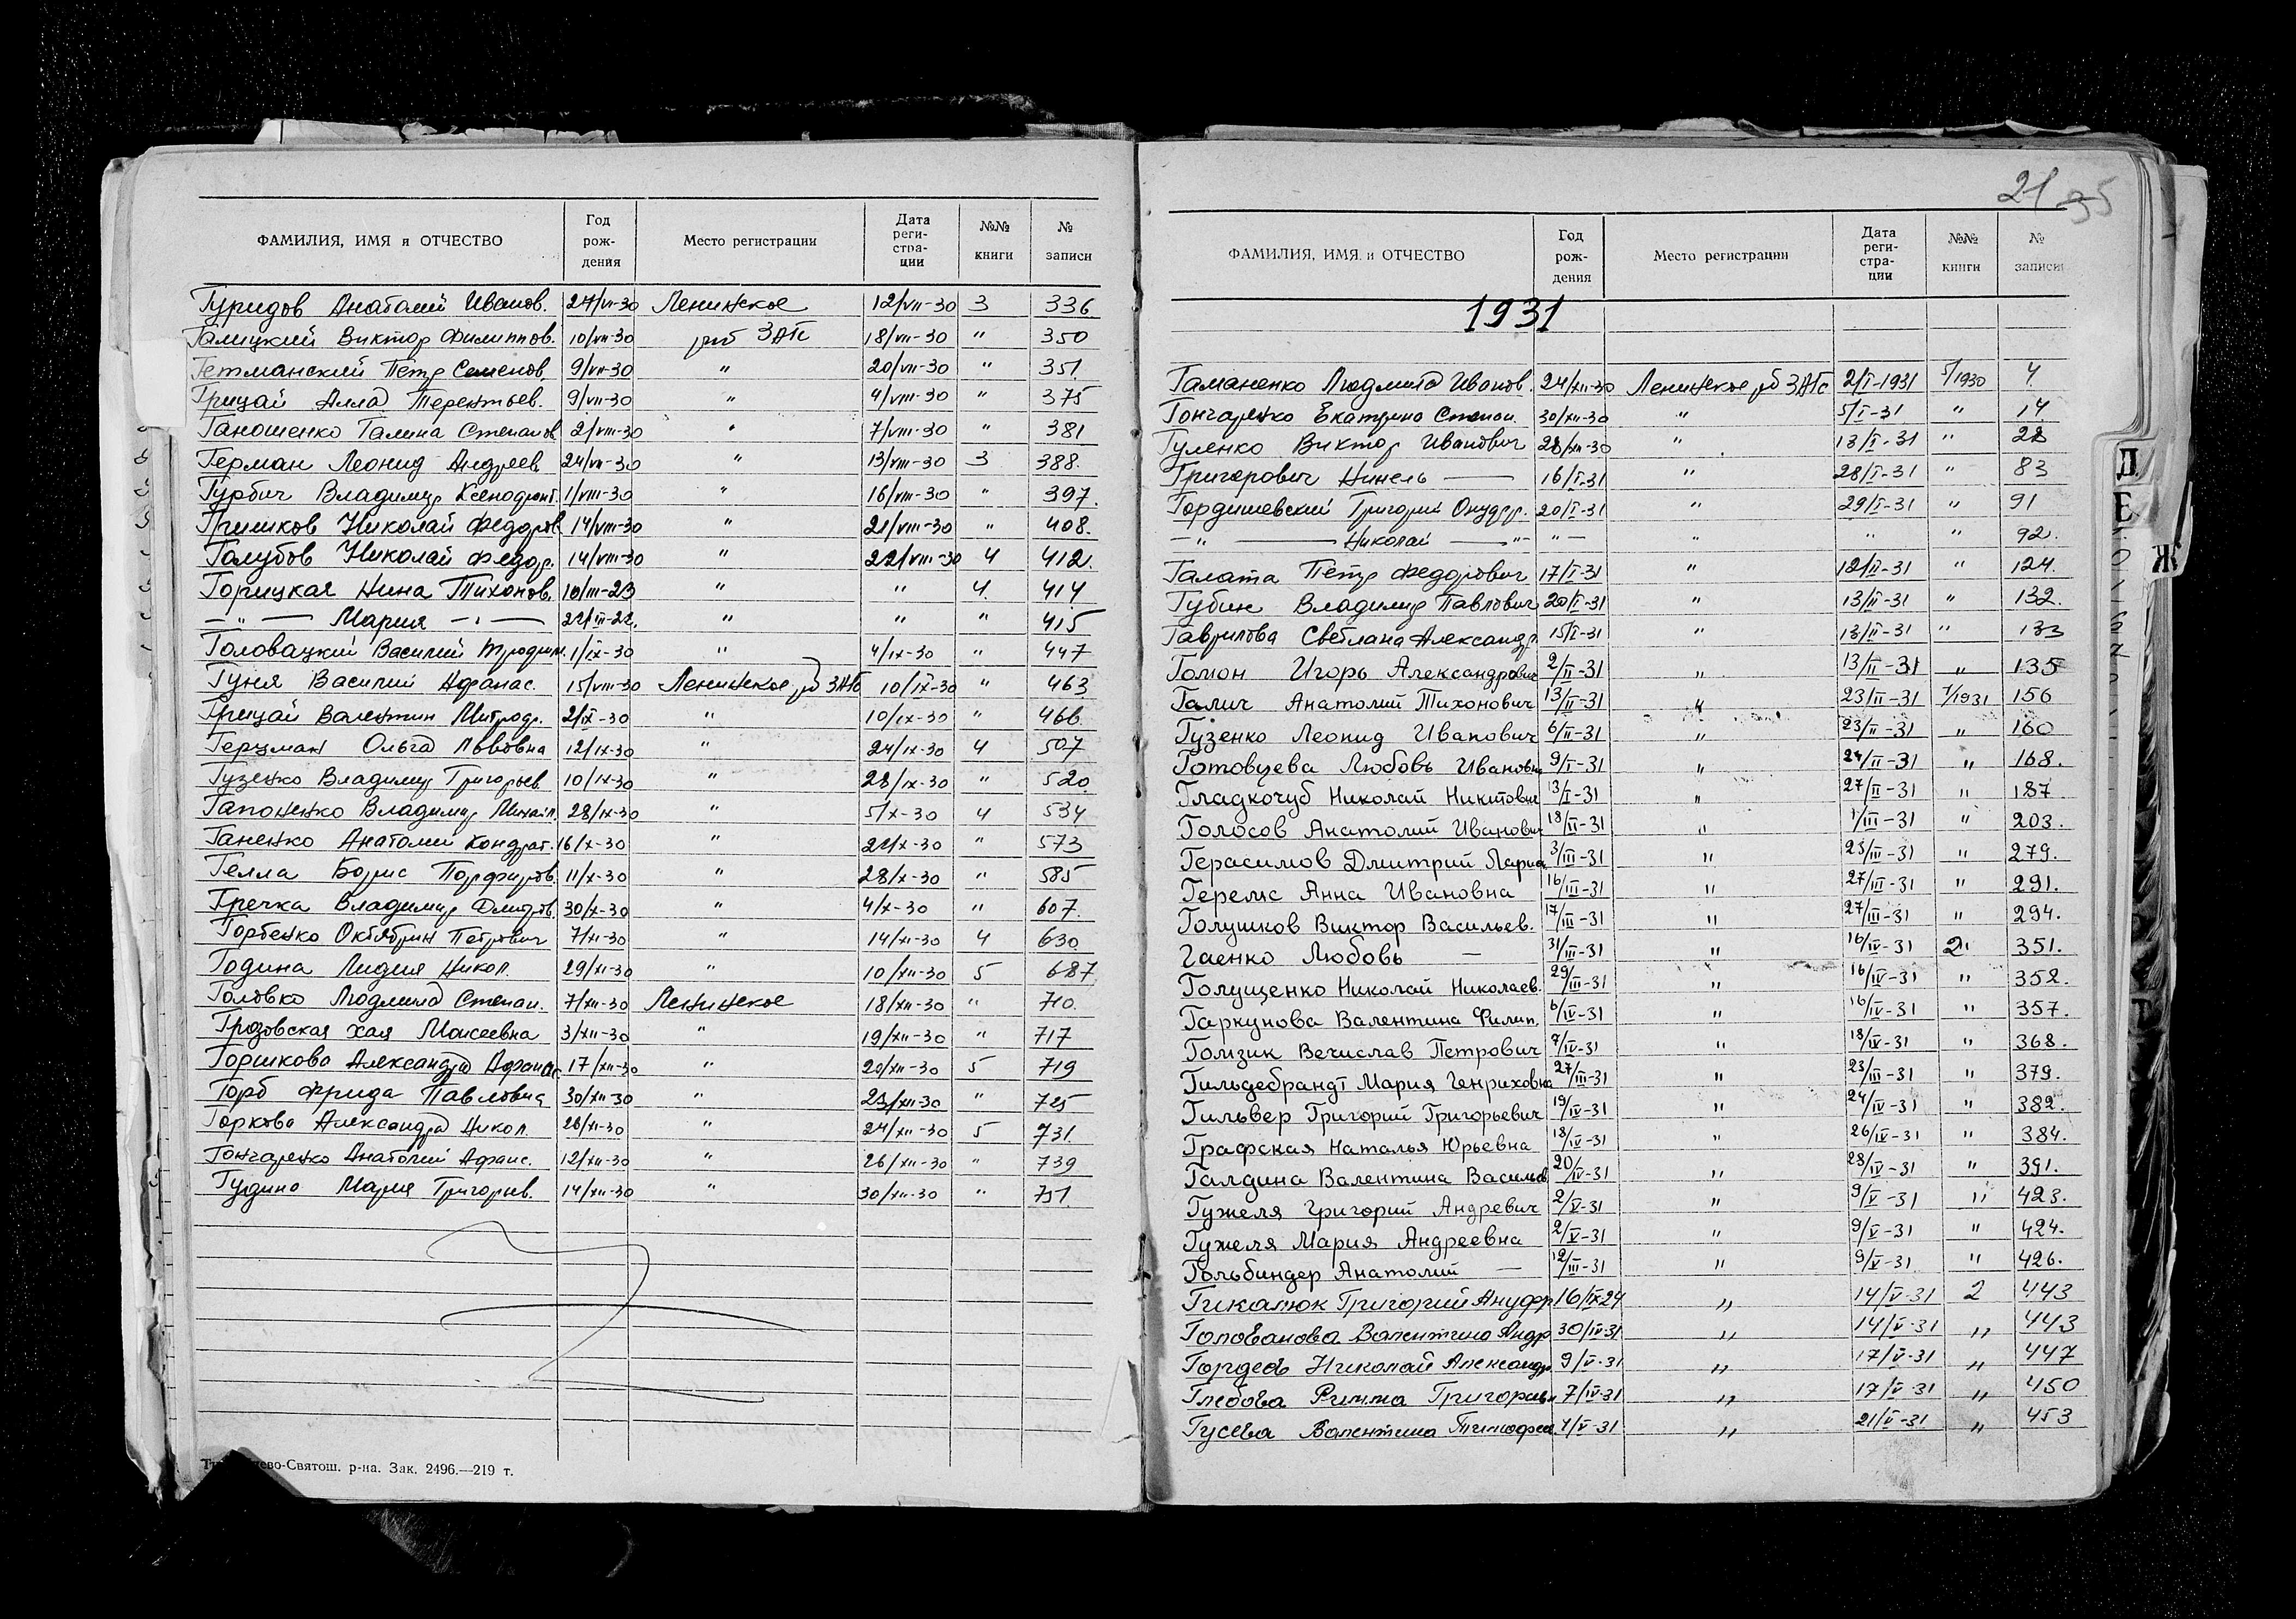 ФАМИЛИЯ, ИМЯ и ОТЧЕСТВО Год рождения Место регистрации Дата регистрации №№ книги № записи
Гуридов Анатолий Иванов. 27/VI-30 Ленинское 12/VII-30 3 336
Галицкий Виктор Филиппов. 10/VII-30 раб ЗАГС 18/VII-30 " 350
Гетманский Петр Семенов. 9/VII-30 " 20/VII-30 " 351
Грицай Алла Терентьев. 9/VII-30 " 4/VIII-30 " 375
Ганошенко Галина Степанов 2/VIII-30 " 7/VIII-30 " 381
Герман Леонид Андреев 24/VII-30 " 13/VIII-30 3 388.
Гурбич Владимир Ксенофонт. 1/VIII-30 " 16/VIII-30 " 397.
Гришков Николай Федоров 14/VIII-30 " 21/VIII-30 " 408.
Голубов Николай Федор. 14/VIII-30 " 22/VIII-30 4 412.
Горицкая Нина Тихонов. 10/III-23 " " 4 414
— " — Мария — " — " " " 415
Головацкий Василий 1/IX-30 " 4/IX-30 " 447
Гуня Василий Афанас. 15/VIII-30 Ленинское рб ЗАГС 10/IX-30 " 463
Грицай Валентин Митроф. 2/IX-30 " 10/IX-30 " 466
Герцман Ольга Львовна 12/IX-30 " 24/IX-30 4 507
Гузенко Владимир Григорьев 10/IX-30 " 28/IX-30 " 520
Гапоненко Владимир Михайл. 28/IX-30 " 5/X-30 4 534
Ганенко Анатолий Кондрат. 16/X-30 " 22/X-30 " 573
Гелла Борис Порфиров. 11/X-30 " 28/X-30 " 585
Гречка Владимир Дмитров. 30/X-30 " 4/X-30 " 607.
Горбенко Октябрин Петрович 7/XI-30 " 14/XI-30 4 630
Година Лидия Никол. 29/XI-30 " 10/XII-30 5 687
Головко Людмила Степан. 7/XII-30 Ленинское 18/XII-30 " 710.
Грозовская Хая Моисеевна 3/XII-30 " 19/XII-30 " 717
Горшкова Александра Афанас 17/XII-30 " 20/XII-30 5 719
Горб Фрида Павловна 30/XII-30 " 23/XII-30 " 725
Горкова Александра Никол. 26/XI-30 " 24/XII-30 5 731
Гончаренко Анатолий Афанс. 12/XII-30 " 26/XII-30 " 739
Гудино Мария Григорьев. 14/XII-30 " 30/XII-30 " 751.
ево-Святош. р-на. Зак. 2496.—219 т.
21 35
ФАМИЛИЯ, ИМЯ и ОТЧЕСТВО Год рождения Место регистрации Дата регистрации №№ книги № записи
1931
Гаманенко Людмила Иванов. 24/XII-30 Ленинское рб ЗАГС 2/I-1931 5/1930 4
Гончаренко Екатерина Степан. 30/XII-30 " 5/I-31 " 14
Гуленко Виктор Иванович 28/XII-30 " 13/I-31 " 28
Григорович Нинель — 16/I-31 " 28/I-31 " 83
Гордишевский Григорий Онуфр. 20/I-31 " 29/I-31 " 91
— " — Николай — " — " — " " " 92.
Галата Петр Федорович 17/I-31 " 12/II-31 " 124.
Губин Владимир Павлович 20/I-31 " 13/II-31 " 132.
Гаврилова Светлана Александр. 15/I-31 " 13/II-31 " 133
Гомон Игорь Александрович 2/II-31 " 13/II-31 " 135
Галич Анатолий Тихонович 13/II-31 " 23/II-31 1/1931 156
Гузенко Леонид Иванович 6/II-31 " 23/II-31 " 160
Готовцева Любовь Ивановна 9/I-31 " 24/II-31 " 168.
Гладкочуб Николай Никитович 13/I-31 " 27/II-31 " 187
Голосов Анатолий Иванович 18/II-31 " 1/III-31 " 203.
Герасимов Дмитрий 3/III-31 " 23/III-31 " 279.
Герелс Анна Ивановна 16/III-31 " 27/III-31 " 291.
Голушков Виктор Васильев. 17/III-31 " 27/III-31 " 294.
Гаенко Любовь — 31/III-31 " 16/IV-31 2 351.
Голущенко Николай Николаев. 29/III-31 " 16/IV-31 " 352.
Гаркунова Валентина Филип. 6/IV-31 " 16/IV-31 " 357.
Гомзик Вечислав Петрович 9/IV-31 " 18/IV-31 " 368.
Гильдебрандт Мария Генриховна 27/III-31 " 23/III-31 " 379.
Гильвер Григорий Григорьевич 19/IV-31 " 24/IV-31 " 382.
Графская Наталья Юрьевна 18/IV-31 " 26/IV-31 " 384.
Галдина Валентина Васильев 20/IV-31 " 28/IV-31 " 391.
Гужеля Григорий Андревич 2/V-31 " 9/V-31 " 423.
Гужеля Мария Андреевна 2/V-31 " 9/V-31 " 424.
Гольбиндер Анатолий — 12/III-31 " 9/V-31 " 426.
Гикалюк Григорий Ануфр 16/IX-24 " 14/V-31 2 443
Голованова Валентина Андр 30/IV-31 " 14/V-31 " 443
Гордеев Николай Александр. 9/V-31 " 17/V-31 " 447
Глебова Римма Григорьев 7/IV-31 " 17/V-31 " 450
Гусева Валентина Тимофеев. 4/V-31 " 21/V-31 " 453
Д
Е
Ж